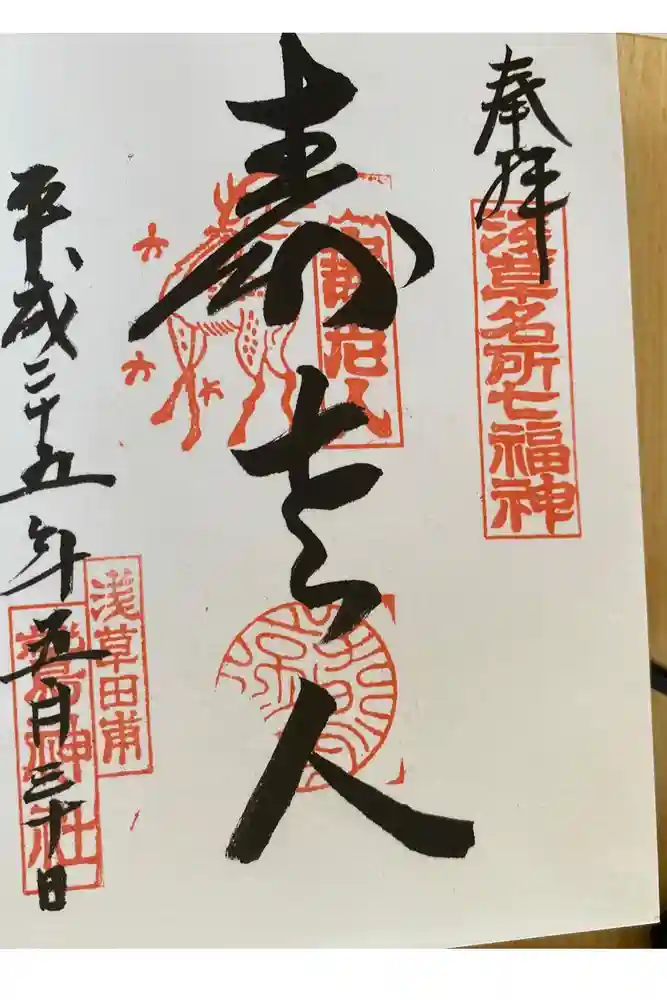 奉拝
浅草名所七福神
寿老人
寿老人
浅草田甫
鷲神社
平成二十五年五月三十日